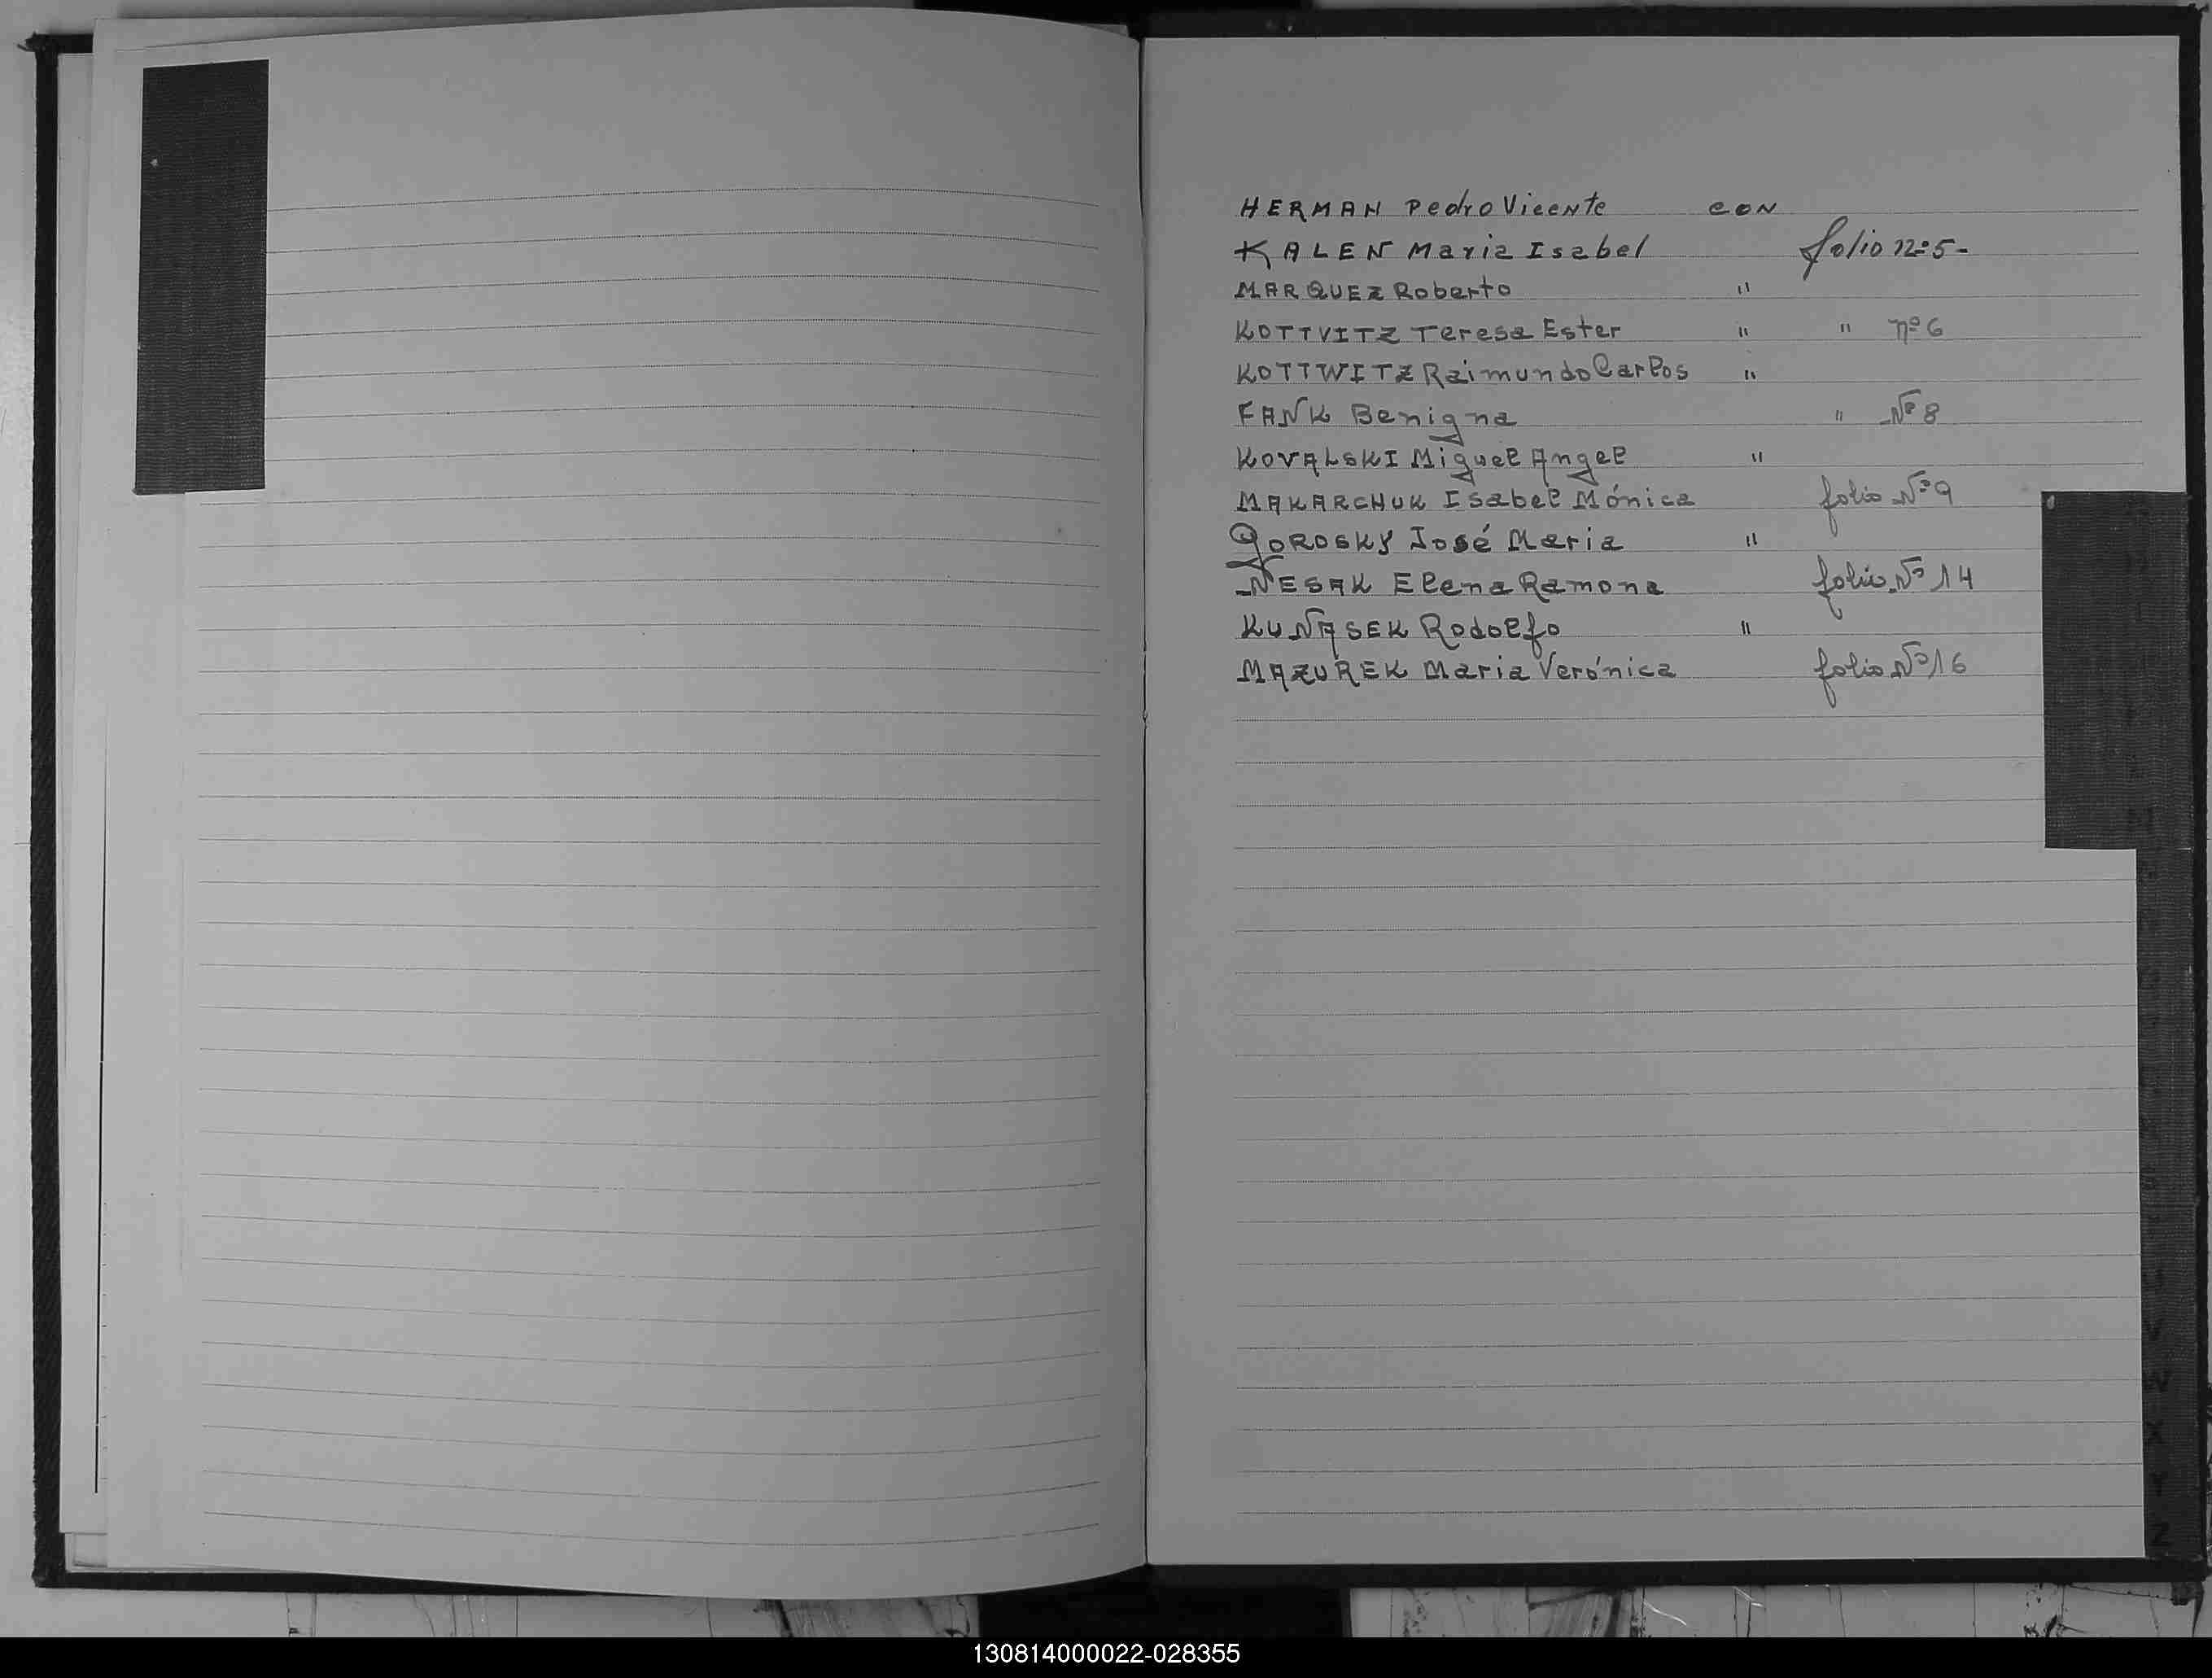 HERMAN Pedro Vicente con
KALEN Maria Isabel folio nº 5-
MARQUEZ Roberto "
KOTTVITZ Teresa Ester " " nº 6
KOTTWITZ Raimundo Carlos "
FANK Benigna " Nº 8
KOVALSKI Miguel Angel "
MAKARCHUK Isabel Mónica folio Nº 9
GOROSKY José Maria "
NESAK Elena Ramona folio Nº 14
KUÑASEK Rodolfo "
MAZUREK Maria Verónica folio Nº 16
V
W
X
Y
Z
130814000022-028355